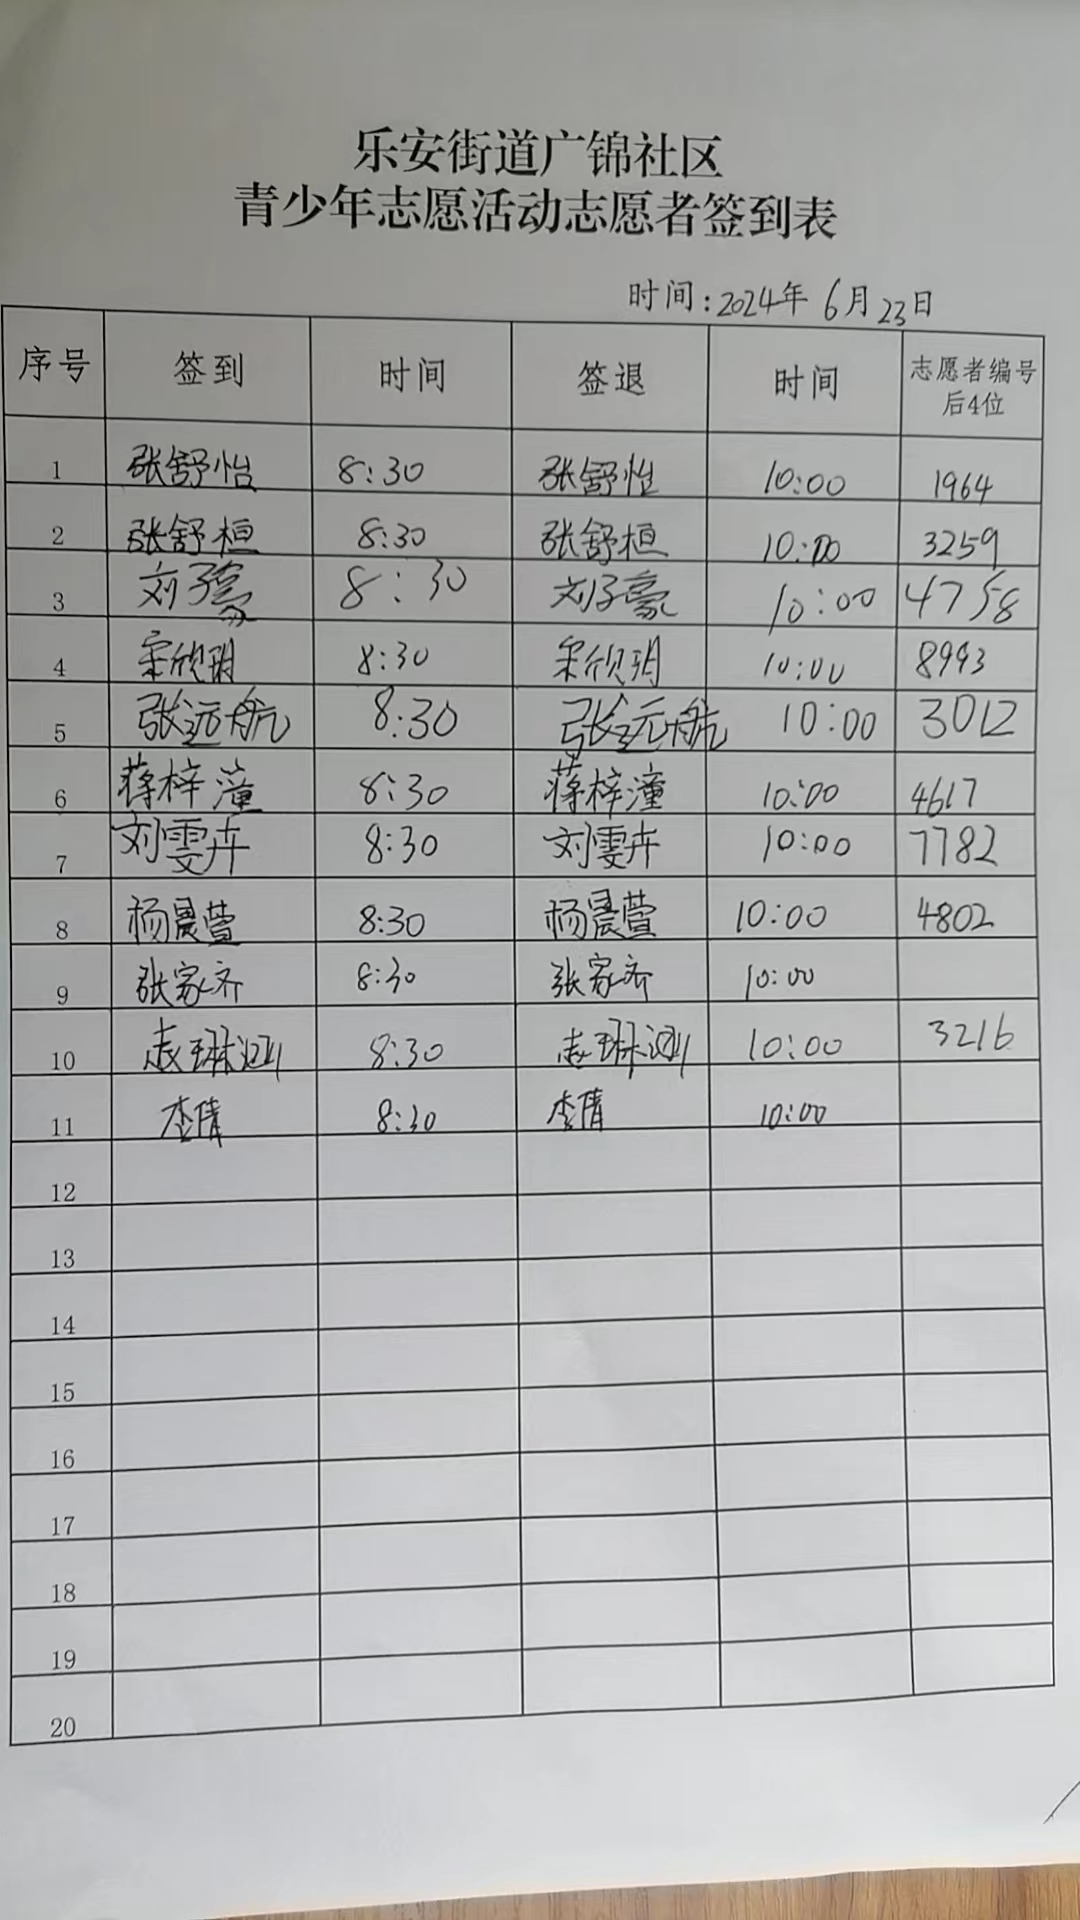 乐安街道广锦社区
青少年志愿活动志愿者签到表
时间:2024年 6月23日
序号 签到 时间 签退 时间 志愿者编号后4位
1 张舒怡 8:30 张舒怡 10:00 1964
2 张舒桓 8:30 张舒桓 10:00 3259
3 刘子豪 8:30 刘子豪 10:00 4758
4 宋欣玥 8:30 宋欣玥 10:00 8993
5 张远航 8:30 张远航 10:00 3012
6 蒋梓潼 8:30 蒋梓潼 10:00 4617
7 刘雯卉 8:30 刘雯卉 10:00 7782
8 杨晨萱 8:30 杨晨萱 10:00 4802
9 张家齐 8:30 张家齐 10:00
10 8:30 10:00 3216
11 李倩 8:30 李倩 10:00
12
13
14
15
16
17
18
19
20